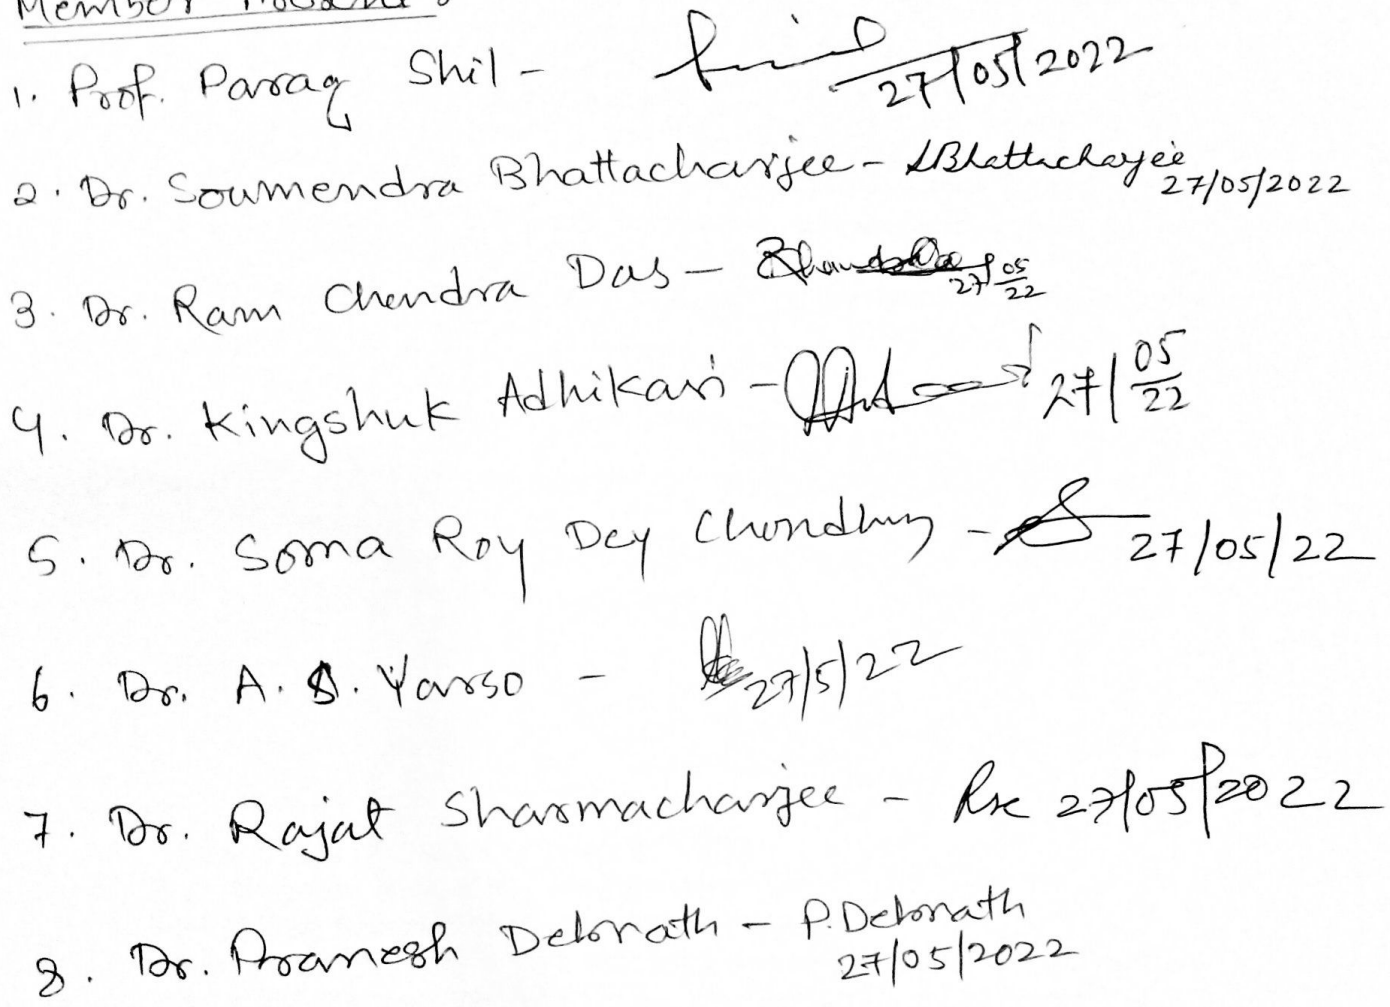 Member Present:
1. Prof. Parag Shil - 27/05/2022
2. Dr. Soumendra Bhattacharjee - SBhattacharjee 27/05/2022
3. Dr. Ram Chandra Das - 27/05/22
4. Dr. Kingshuk Adhikari - 27/05/22
5. Dr. Soma Roy Dey Choudhury - 27/05/22
6. Dr. A. S. Yarso - 27/5/22
7. Dr. Rajat Sharmacharjee - 27/05/2022
8. Dr. Pranesh Debnath - P. Debnath
27/05/2022